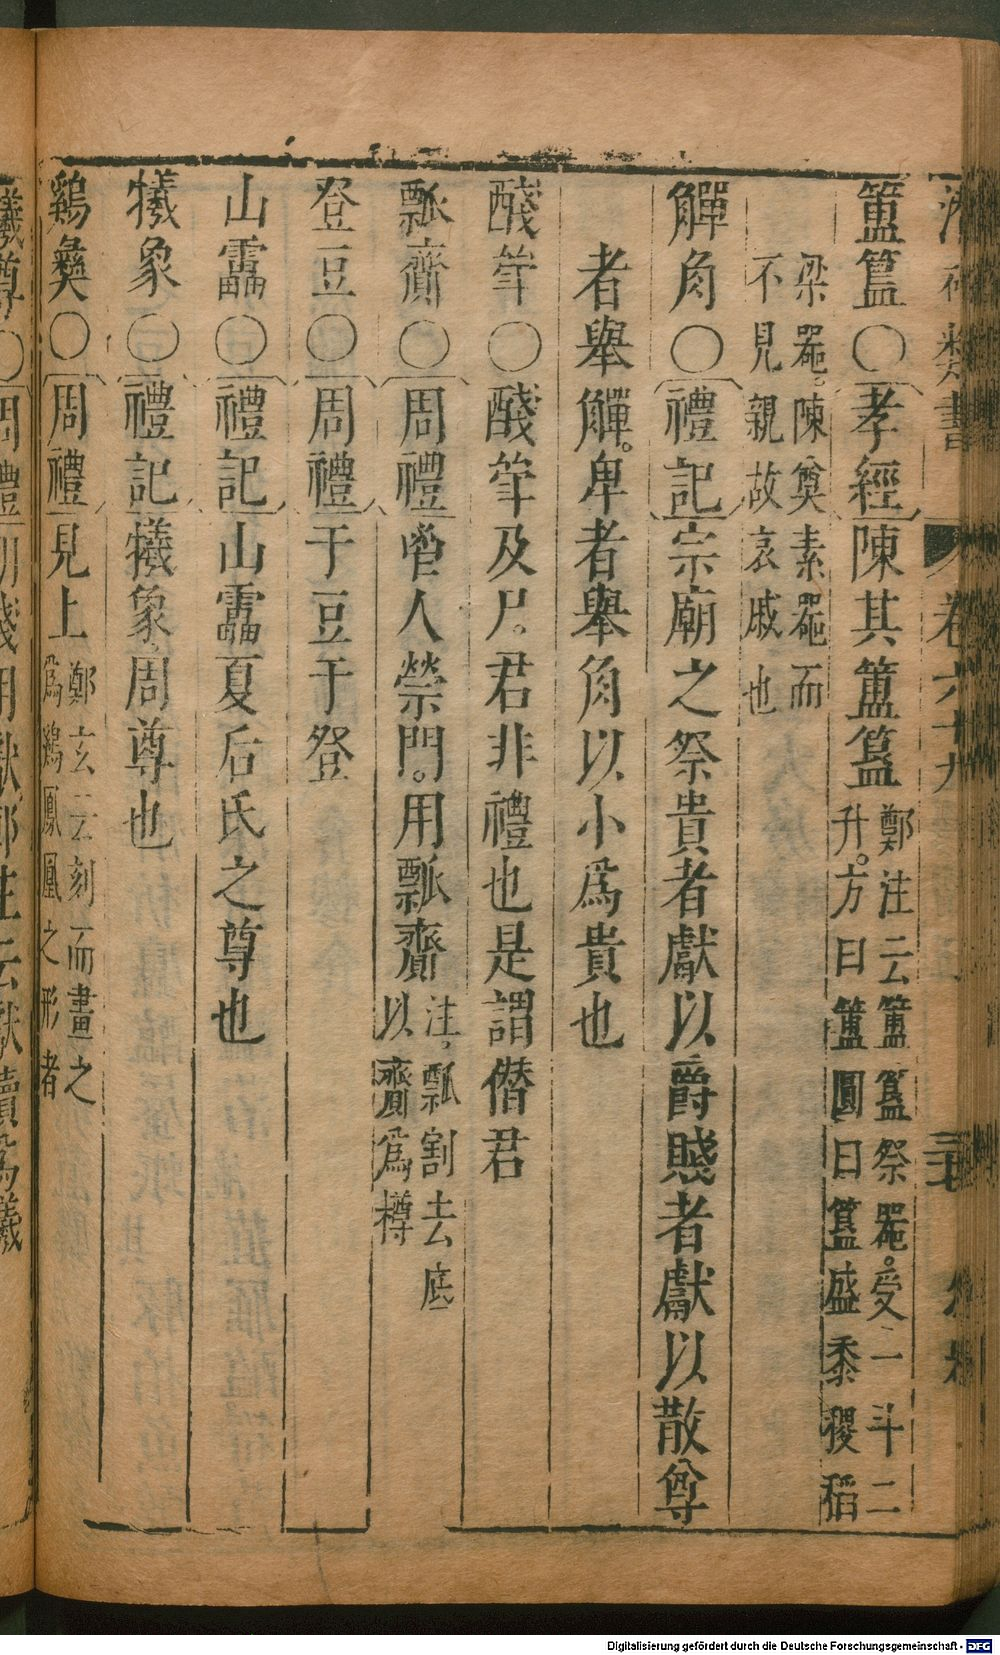 類書 卷六十九
簠簋〇孝經陳其簠簋
鄭注云簠簋祭器。受一斗二
升。方曰簠圓曰簋盛黍稷稻
梁器。陳奠素器而
不見親故哀戚也
觶角〇禮記宗廟之祭貴者獻以爵賤者獻以散尊
者舉觶。卑者舉角以小爲貴也
醆斝〇醆斝及尸。君非禮也是謂僭君
瓢齎〇周禮鬯人禜門。用瓢齎
注。瓢割去底
以齎爲樽
登豆〇周禮于豆于登
山罍〇禮記山罍夏后氏之尊也
犧象〇禮記犧象。周尊也
鷄彝〇周禮見上
鄭玄云刻而畫之
爲鷄鳳凰之形者
犧尊〇周禮朝踐用獻鄭注云獻讀爲犧
Digitalisierung gefördert durch die Deutsche Forschungsgemeinschaft - DFG